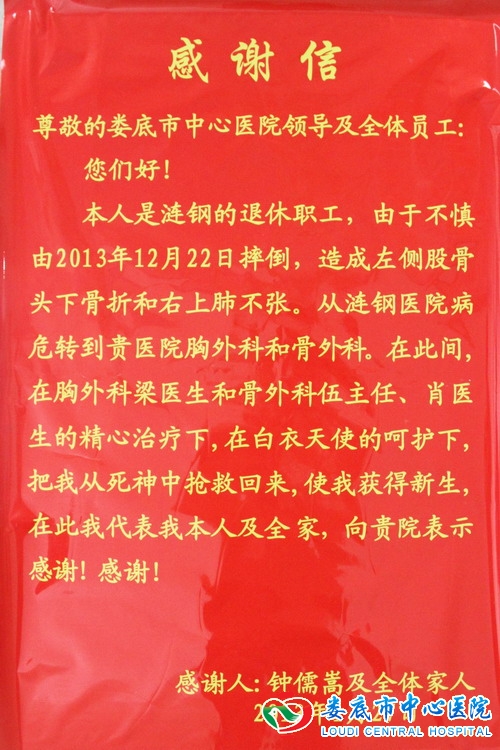 感谢信
尊敬的娄底市中心医院领导及全体员工:
您们好!
本人是涟钢的退休职工，由于不慎
由2013年12月22日摔倒，造成左侧股骨
头下骨折和右上肺不张。从涟钢医院病
危转到贵医院胸外科和骨外科。在此间,
在胸外科梁医生和骨外科伍主任、肖医
生的精心治疗下,在白衣天使的呵护下,
把我从死神中抢救回来,使我获得新生,
在此我代表我本人及全家，向贵院表示
感谢! 感谢!
感谢人: 钟儒嵩及全体家人
娄底市中心医院
LOUDI CENTRAL HOSPITAL